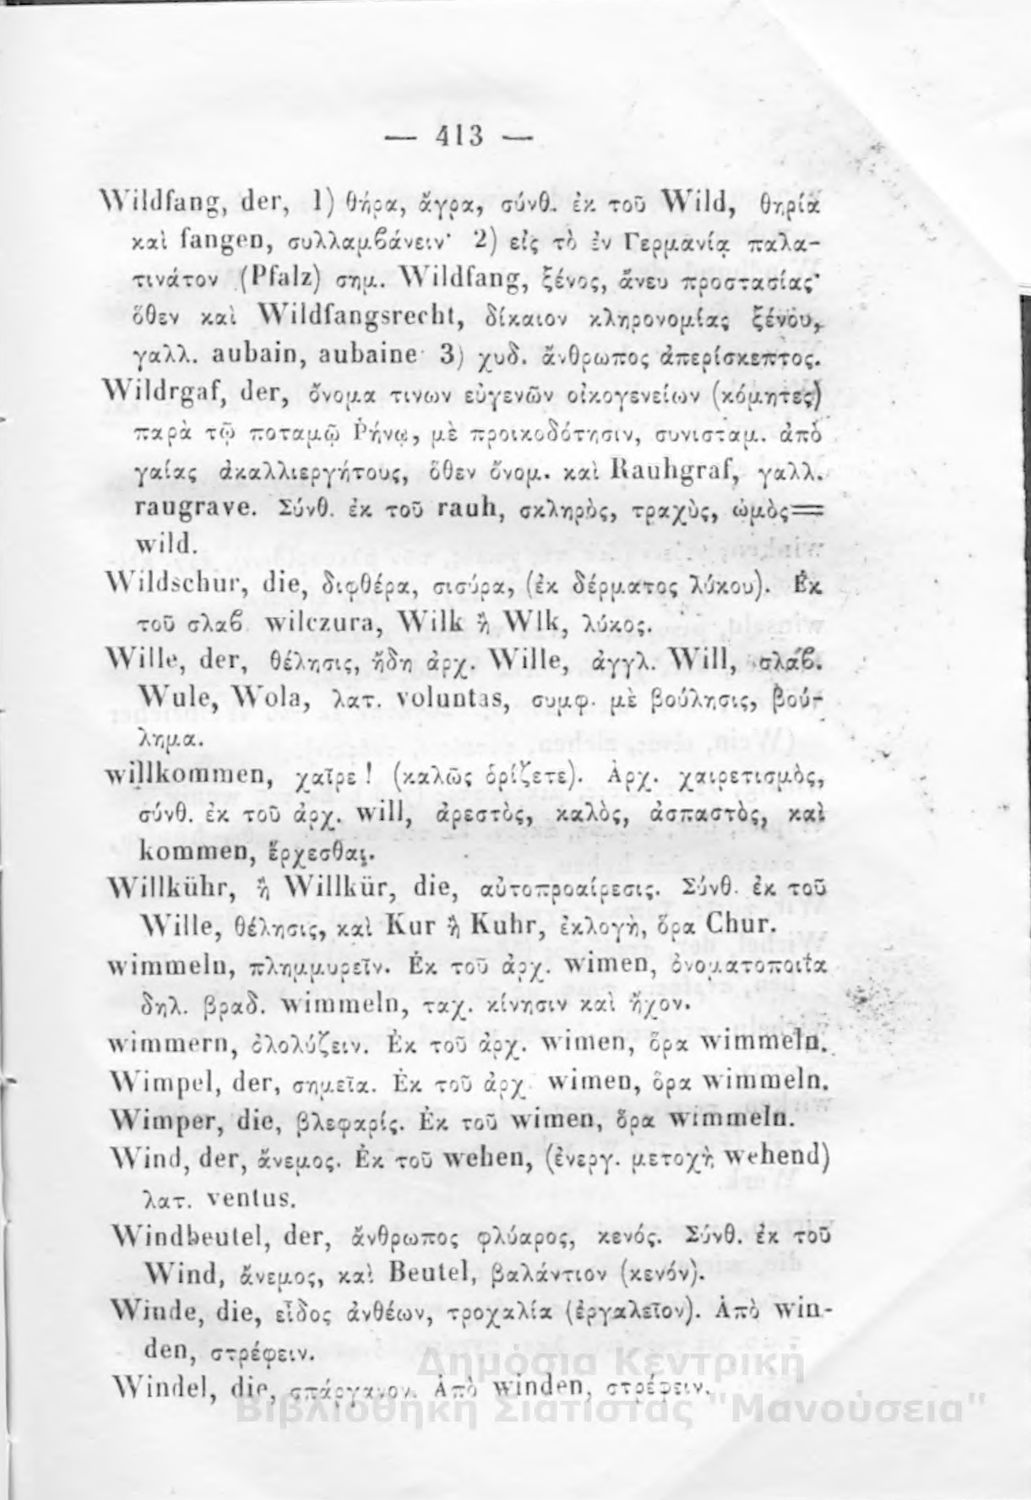 — 413 —
Wildfang, der, 1) θήρα, ἄγρα, σύνθ. ἐκ τοῦ Wild, θηρία
καὶ fangen, συλλαμβάνειν· 2) εἰς τὸ ἐν Γερμανίᾳ παλα-
τινάτον (Pfalz) σημ. Wildfang, ξένος, ἄνευ προστασίας·
ὅθεν καὶ Wildfangsrecht, δίκαιον κληρονομίας ξένου,
γαλλ. aubain, aubaine· 3) χυδ. ἄνθρωπος ἀπερίσκεπτος.
Wildrgaf, der, ὄνομα τινων εὐγενῶν οἰκογενείων (κόμητες)
παρὰ τῷ ποταμῷ Ῥήνῳ, μὲ προικοδότησιν, συνισταμ. ἀπὸ
γαίας ἀκαλλιεργήτους, ὅθεν ὄνομ. καὶ Rauhgraf, γαλλ.
raugrave. Σύνθ. ἐκ τοῦ rauh, σκληρὸς, τραχὺς, ὠμὸς=
wild.
Wildschur, die, διφθέρα, σισύρα, (ἐκ δέρματος λύκου). Ἐκ
τοῦ σλαβ. wilczura, Wilk ἢ Wlk, λύκος.
Wille, der, θέλησις, ἤδη ἀρχ. Wille, ἀγγλ. Will, σλαβ.
Wule, Wola, λατ. voluntas, συμφ. μὲ βούλησις, βού-
λημα.
willkommen, χαῖρε! (καλῶς ὁρίζετε). Ἀρχ. χαιρετισμὸς,
σύνθ. ἐκ τοῦ ἀρχ. will, ἀρεστὸς, καλὸς, ἀσπαστὸς, καὶ
kommen, ἔρχεσθαι.
Willkühr, ἢ Willkür, die, αὐτοπροαίρεσις. Σύνθ. ἐκ τοῦ
Wille, θέλησις, καὶ Kur ἢ Kuhr, ἐκλογὴ, ὅρα Chur.
wimmeln, πλημμυρεῖν. Ἐκ τοῦ ἀρχ. wimen, ὀνοματοποιΐα
δηλ. βραδ. wimmeln, ταχ. κίνησιν καὶ ἦχον.
wimmern, ὀλολύζειν. Ἐκ τοῦ ἀρχ. wimen, ὅρα wimmeln.
Wimpel, der, σημεῖα. Ἐκ τοῦ ἀρχ. wimen, ὅρα wimmeln.
Wimper, die, βλεφαρίς. Ἐκ τοῦ wimen, ὅρα wimmeln.
Wind, der, ἄνεμος. Ἐκ τοῦ wehen, (ἐνεργ. μετοχὴ wehend)
λατ. ventus.
Windbeutel, der, ἄνθρωπος φλύαρος, κενός. Σύνθ. ἐκ τοῦ
Wind, ἄνεμος, καὶ Beutel, βαλάντιον (κενόν).
Winde, die, εἶδος ἀνθέων, τροχαλία (ἐργαλεῖον). Ἀπὸ win-
den, στρέφειν.
Windel, die, σπάργανον. Ἀπὸ winden, στρέφειν.
Δημόσια Κεντρική
Βιβλιοθήκη Σιάτιστας "Μανούσεια"